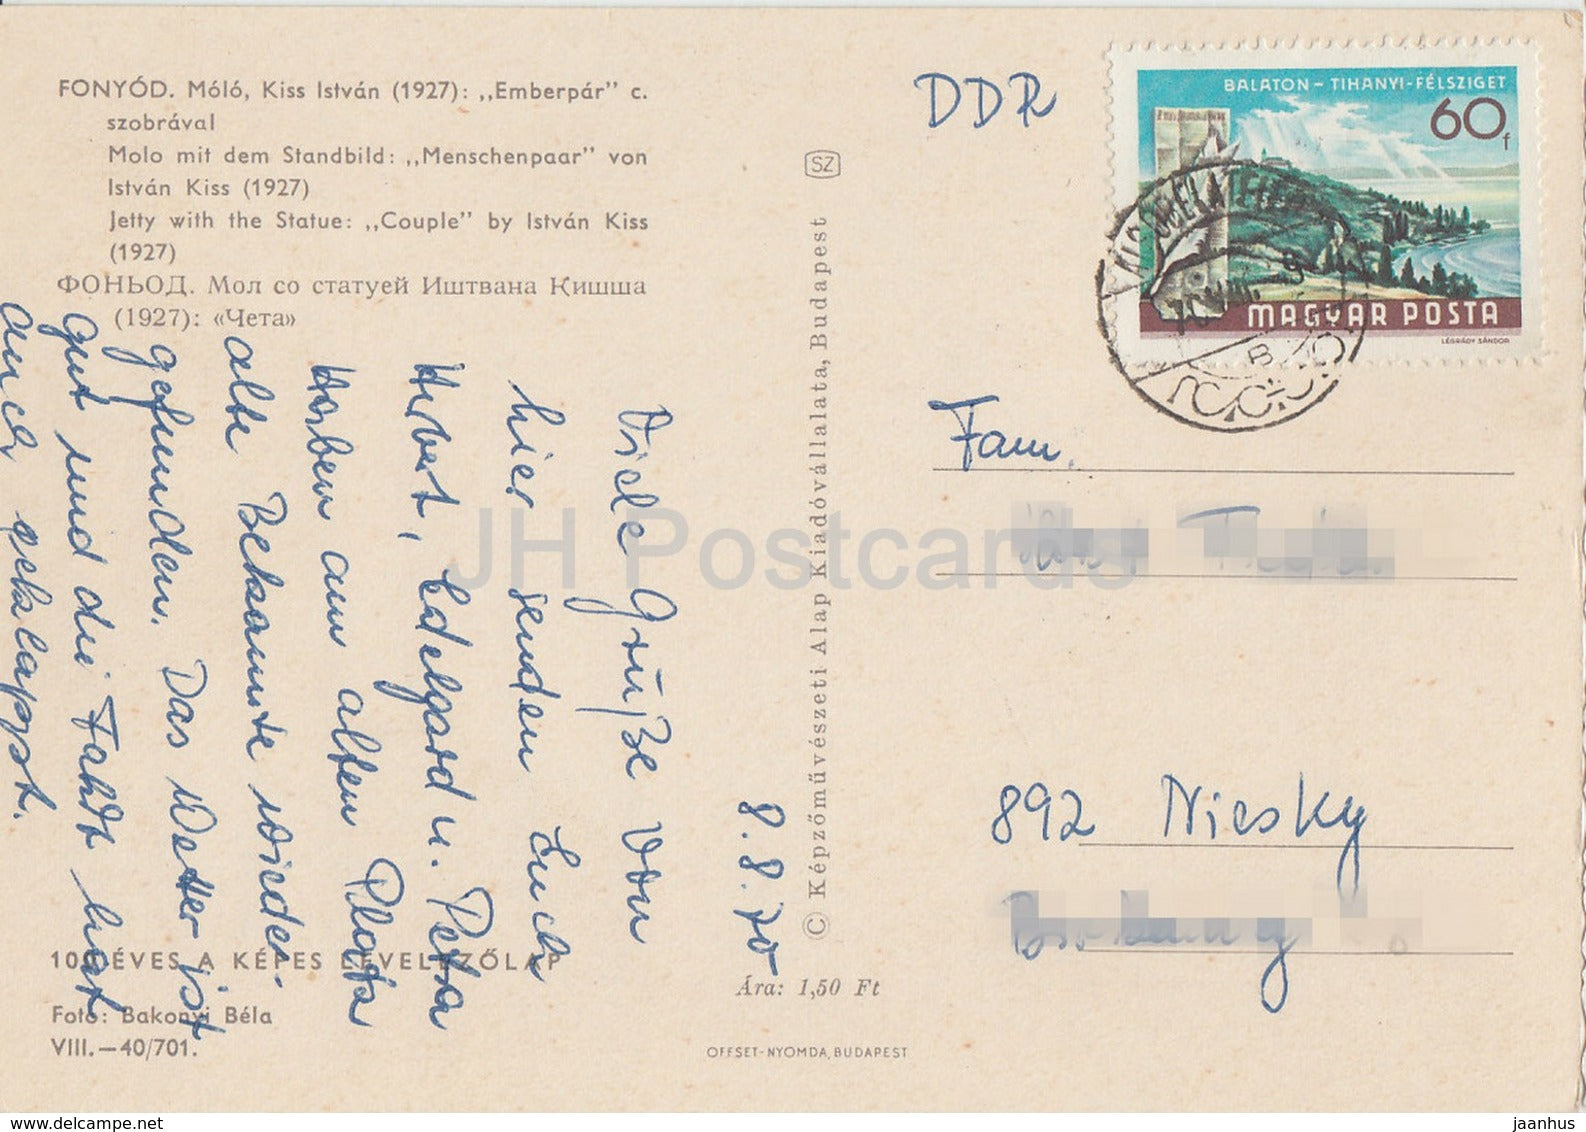 FONYÓD. Móló, Kiss István (1927): „Emberpár” c.
szobrával
Molo mit dem Standbild: „Menschenpaar” von
István Kiss (1927)
Jetty with the Statue: „Couple” by István Kiss
(1927)
ФОНЬОД. Мол со статуей Иштвана Кишша
(1927): «Чета»
8.8.70
Viele Grüße von
hier senden Euch
Herbert, Edelgard u. Petra
Haben am alten Platz
alte Bekannte wieder
gefunden. Das Wetter ist
gut und die Fahrt hat
auch geklappt.
100 ÉVES A KÉPES LEVELEZŐLAP
Foto: Bakonyi Béla
VIII.—40/701.
SZ
© Képzőművészeti Alap Kiadóvállalata, Budapest
Ára: 1,50 Ft
OFFSET-NYOMDA, BUDAPEST
DDR
BALATON – TIHANYI-FÉLSZIGET
60f
MAGYAR POSTA
LÉGRÁDY SÁNDOR
B
Fam.
892 Niesky
JH Postcards
www.delcampe.net
jaanhus